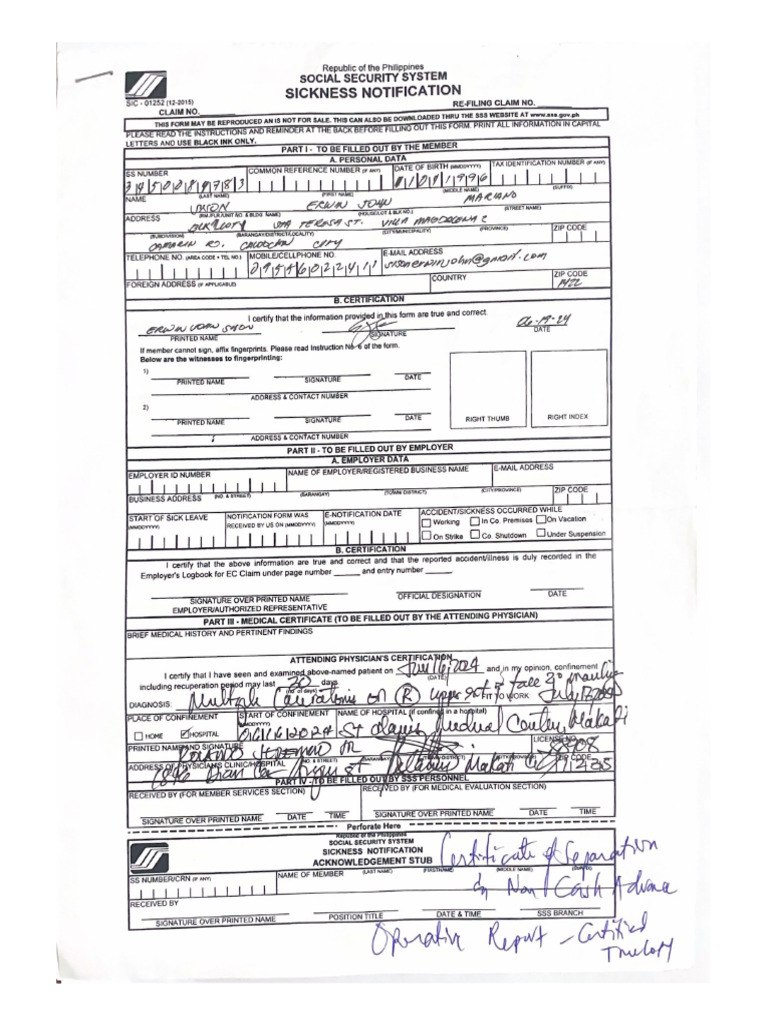 Republic of the Philippines
SOCIAL SECURITY SYSTEM
SICKNESS NOTIFICATION
SIC - 01252 (12-2015)
CLAIM NO.
RE-FILING CLAIM NO.
THIS FORM MAY BE REPRODUCED AN IS NOT FOR SALE. THIS CAN ALSO BE DOWNLOADED THRU THE SSS WEBSITE AT www.sss.gov.ph
PLEASE READ THE INSTRUCTIONS AND REMINDER AT THE BACK BEFORE FILLING OUT THIS FORM. PRINT ALL INFORMATION IN CAPITAL
LETTERS AND USE BLACK INK ONLY.
PART I - TO BE FILLED OUT BY THE MEMBER
A. PERSONAL DATA
SS NUMBER COMMON REFERENCE NUMBER (IF ANY) DATE OF BIRTH (MMDDYYYY) TAX IDENTIFICATION NUMBER (IF ANY)
NAME (LAST NAME) (FIRST NAME) (MIDDLE NAME) (SUFFIX)
ERWIN JOHN MARIANO
ADDRESS (RM./FLR./UNIT NO. & BLDG NAME) (HOUSE/LOT & BLK NO.) (STREET NAME)
STA TERESA ST. VILLA MAGDALENA
(SUBDIVISION) (BARANGAY/DISTRICT/LOCALITY) (CITY/MUNICIPALITY) (PROVINCE) ZIP CODE
CAMARIN RD. CALOOCAN CITY
TELEPHONE NO. (AREA CODE + TEL. NO.) MOBILE/CELLPHONE NO. E-MAIL ADDRESS
FOREIGN ADDRESS (IF APPLICABLE) COUNTRY ZIP CODE
B. CERTIFICATION
I certify that the information provided in this form are true and correct.
06-19-24
PRINTED NAME SIGNATURE DATE
If member cannot sign, affix fingerprints. Please read Instruction No. 6 of the form.
Below are the witnesses to fingerprinting:
1)
PRINTED NAME SIGNATURE DATE
ADDRESS & CONTACT NUMBER
2)
PRINTED NAME SIGNATURE DATE
RIGHT THUMB RIGHT INDEX
ADDRESS & CONTACT NUMBER
PART II - TO BE FILLED OUT BY EMPLOYER
A. EMPLOYER DATA
EMPLOYER ID NUMBER NAME OF EMPLOYER/REGISTERED BUSINESS NAME E-MAIL ADDRESS
BUSINESS ADDRESS (NO. & STREET) (BARANGAY) (TOWN/DISTRICT) (CITY/PROVINCE) ZIP CODE
START OF SICK LEAVE NOTIFICATION FORM WAS E-NOTIFICATION DATE ACCIDENT/SICKNESS OCCURRED WHILE
(MMDDYYYY) RECEIVED BY US ON (MMDDYYYY) (MMDDYYYY) Working In Co. Premises On Vacation
On Strike Co. Shutdown Under Suspension
B. CERTIFICATION
I certify that the above information are true and correct and that the reported accident/illness is duly recorded in the
Employer's Logbook for EC Claim under page number and entry number
SIGNATURE OVER PRINTED NAME OFFICIAL DESIGNATION DATE
EMPLOYER/AUTHORIZED REPRESENTATIVE
PART III - MEDICAL CERTIFICATE (TO BE FILLED OUT BY THE ATTENDING PHYSICIAN)
BRIEF MEDICAL HISTORY AND PERTINENT FINDINGS
ATTENDING PHYSICIAN'S CERTIFICATION
I certify that I have seen and examined above-named patient on June 16, 2024 (DATE) and in my opinion, confinement
including recuperation period may last 30 (no. of days) days
DIAGNOSIS: Multiple Lacerations on (R) upper FIT TO WORK
PLACE OF CONFINEMENT START OF CONFINEMENT NAME OF HOSPITAL (if confined in a hospital)
HOME HOSPITAL (MMDDYYYY) 06162024 St Clares Medical Center, Makati
PRINTED NAME AND SIGNATURE LICENSE NO.
ADDRESS OF PHYSICIAN'S CLINIC/HOSPITAL (NO. & STREET) (BARANGAY) (TOWN/DISTRICT) (CITY/PROVINCE) ZIP CODE
1846 Dian Makati
PART IV - TO BE FILLED OUT BY SSS PERSONNEL
RECEIVED BY (FOR MEMBER SERVICES SECTION) RECEIVED BY (FOR MEDICAL EVALUATION SECTION)
SIGNATURE OVER PRINTED NAME DATE TIME SIGNATURE OVER PRINTED NAME DATE TIME
Perforate Here
Republic of the Philippines
SOCIAL SECURITY SYSTEM
SICKNESS NOTIFICATION
ACKNOWLEDGEMENT STUB
Certificate of Separation
SS NUMBER/CRN (IF ANY) NAME OF MEMBER (LAST NAME) (FIRSTNAME) (MIDDLE NAME) (SUFFIX)
Non Cash Advance
RECEIVED BY
SIGNATURE OVER PRINTED NAME POSITION TITLE DATE & TIME SSS BRANCH
Operative Report - Certified
True Copy